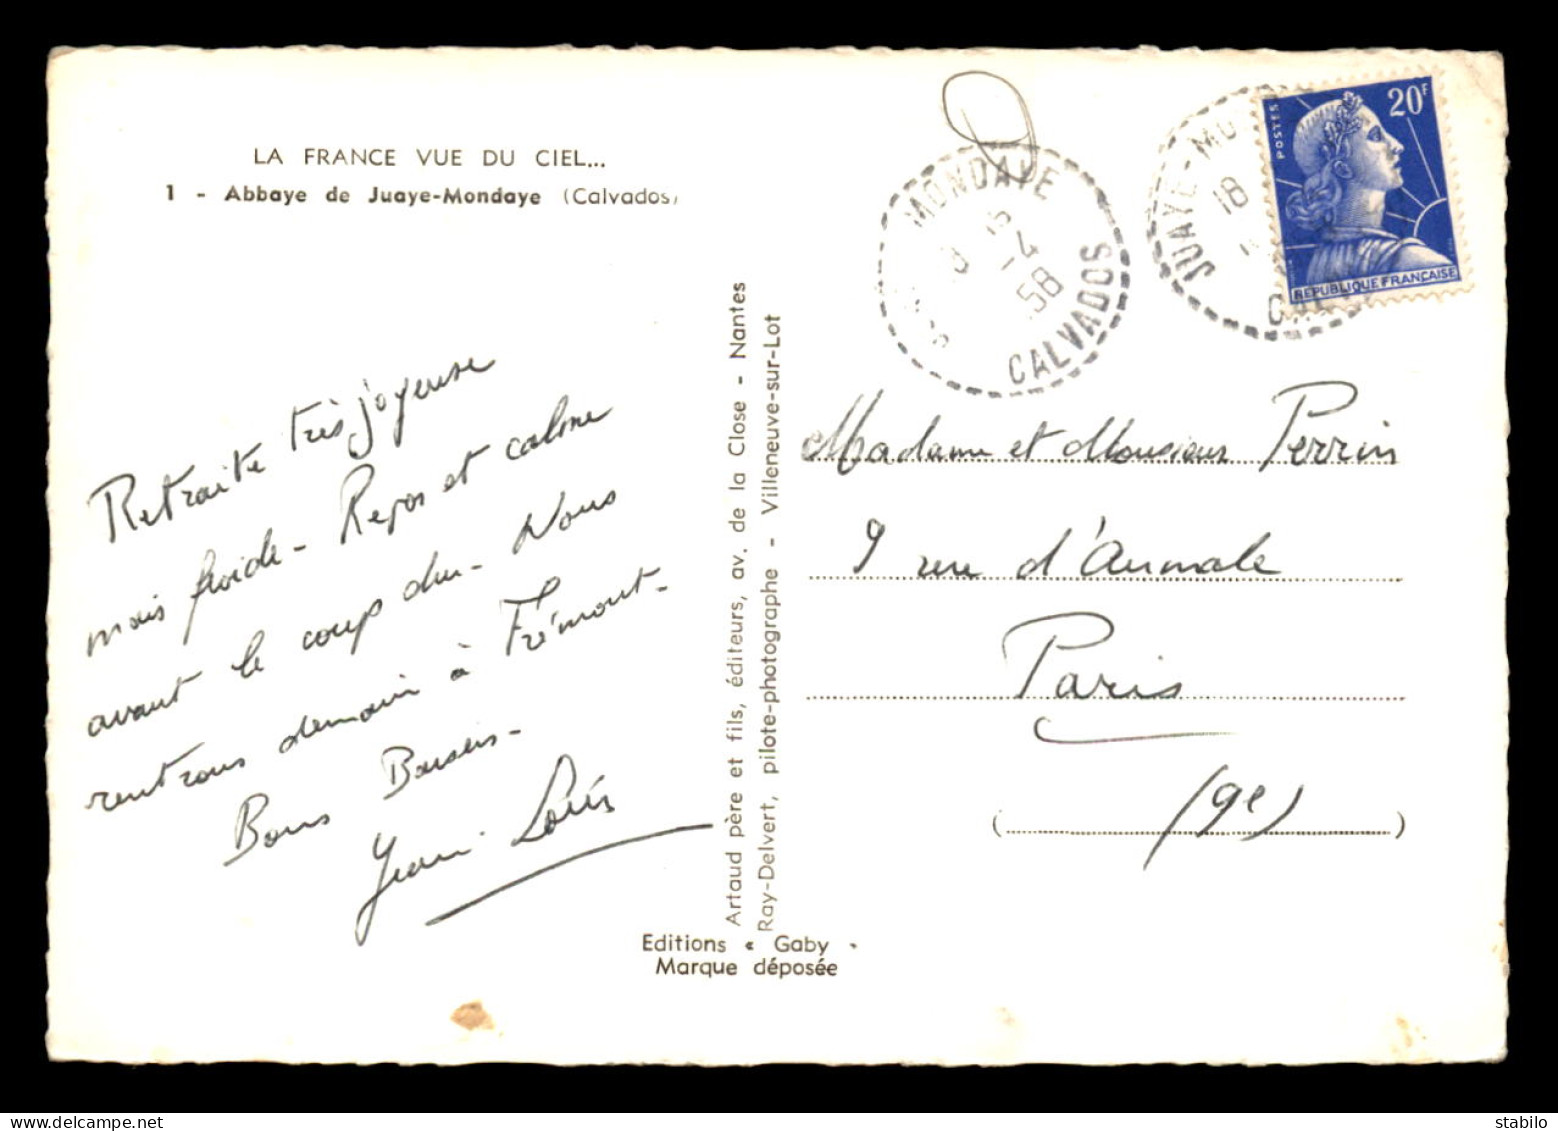 LA FRANCE VUE DU CIEL...
1 - Abbaye de Juaye-Mondaye (Calvados)
Retraite très joyeuse
mais froide - Repos et calme
avant le coup du - Nous
rentrons demain à Frémont -
Bons Baisers -
Jean Louis
Artaud père et fils, éditeurs, av. de la Close - Nantes
Ray-Delvert, pilote-photographe - Villeneuve-sur-Lot
Editions « Gaby »
Marque déposée
MONDAYE
18
4
58
CALVADOS
JUAYE-MO
18
CALV
POSTES
20F
REPUBLIQUE FRANÇAISE
Madame et Monsieur Perrin
9 rue d'Aumale
Paris
(9e)